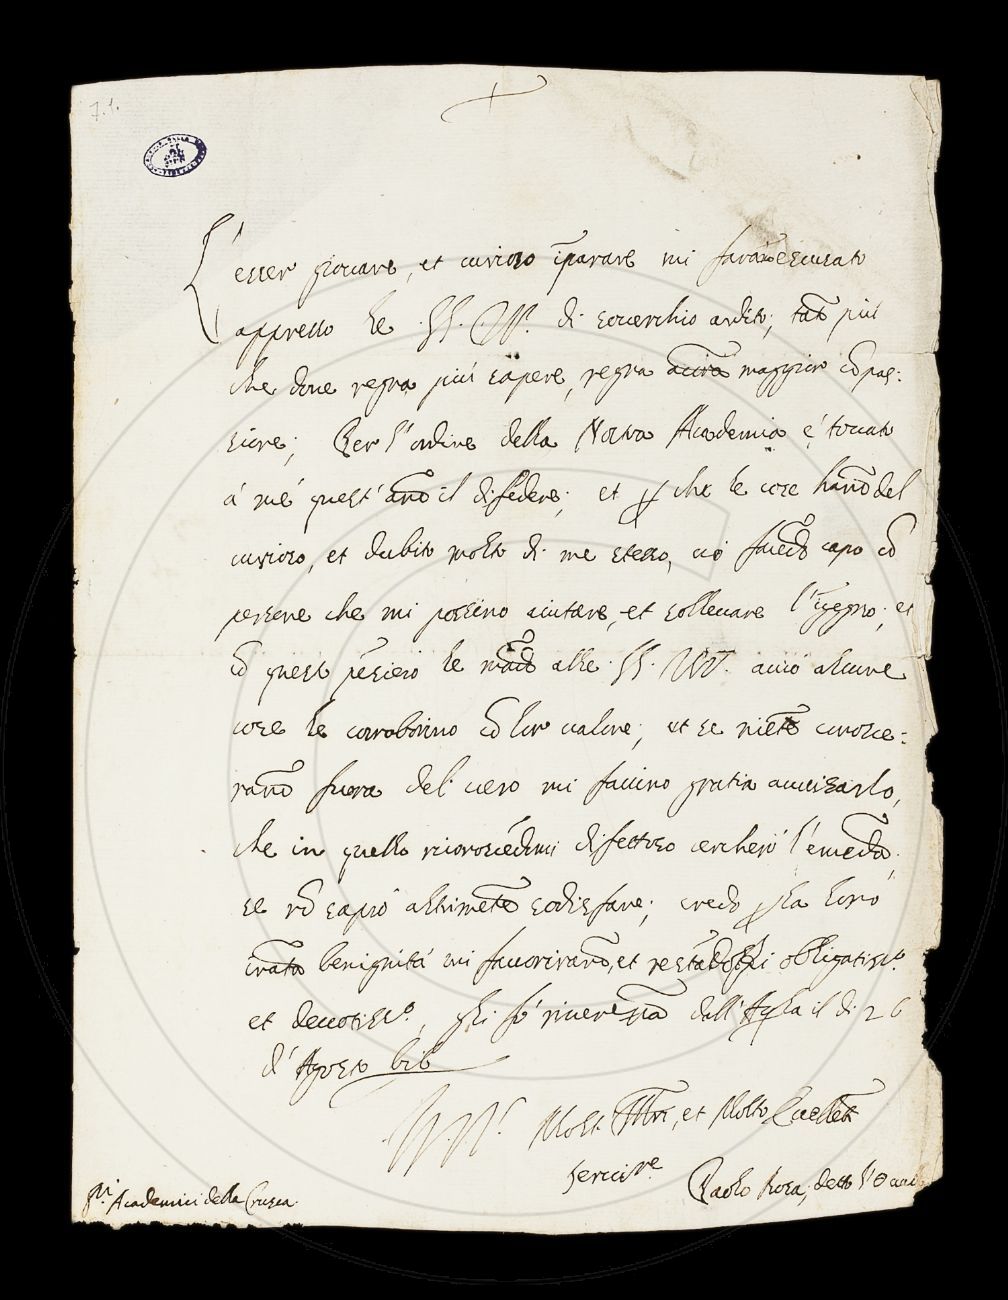 7.1.
L'
esser giovane, et curioso īparare mi farāno escusato
appresso le SS. VV. di soverchio ardito; tāto più
che dove regna più sapere, regna ancora maggior cōpas:
sione; Per l'ordine della Nostra Academia è toccato
à me quest' āno il difēdere; et che le cose hāno del
curioso, et dubito molto di me stesso, vò facēdo capo cō
persone che mi possino aiutare, et sollevare l'īgegno; et
cō questo pēsiero le mādo alle SS. VV. acciò alcune
cose le corroborino cō lor valore; et se niēte conosce:
rāno fuora del vero mi faccino gratia avvisarlo,
che in quello riconoscēdomi difettoso cercherò l'emēda;
se nō saprò altrimēte sodisfare; credo la loro
innata benignità mi favorirāno, et restādogli obligatiss.o
et devotiss.o, gli fò riverēza dall' Aq.la il dì 26
d' Agosto 616
VV. SS. Molt. Ill.ri, et Molto Eccellēti
Servi.re
Paolo Rosa, detto l'
SS.ri Academici della Crusca